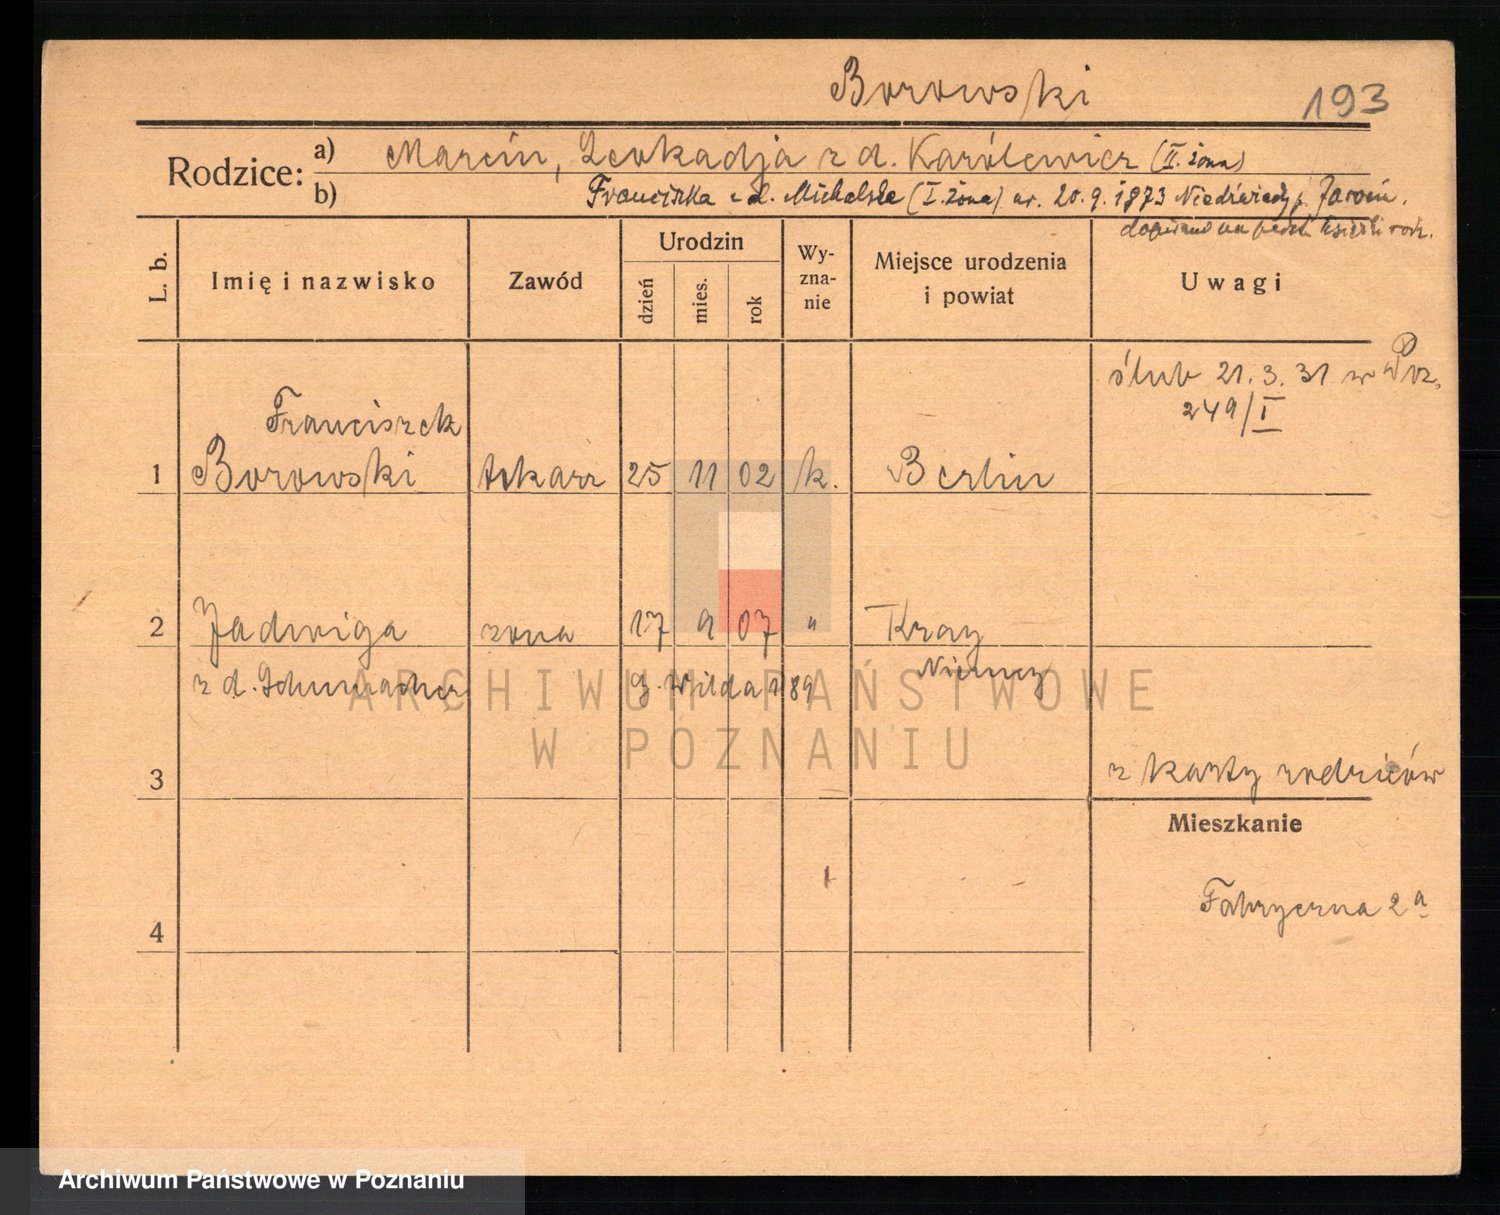 Borowski
193
Rodzice:
a) Marcin, Leokadja z d. Karólewicz (II. żona)
b) Franciszka z d. Michalska (I. żona) ur. 20.9.1873 Niedźwiady p. Jarocin.
dopisano na podst. książki rodz.
L. b.
Imię i nazwisko
Zawód
Urodzin
dzień
mies.
rok
Wy-
zna-
nie
Miejsce urodzenia
i powiat
Uwagi
ślub 21.3.31 w Poz.
249/I
Franciszek
1 Borowski tokarz 25 11 02 k. Berlin
2 Jadwiga zona 17 9 07 " Kray
z d. Schumacher G. Wilda 189 Niemcy
ARCHIWUM PAŃSTWOWE
W POZNANIU
3
z karty rodziców
Mieszkanie
Fabryczna 2a
4
Archiwum Państwowe w Poznaniu